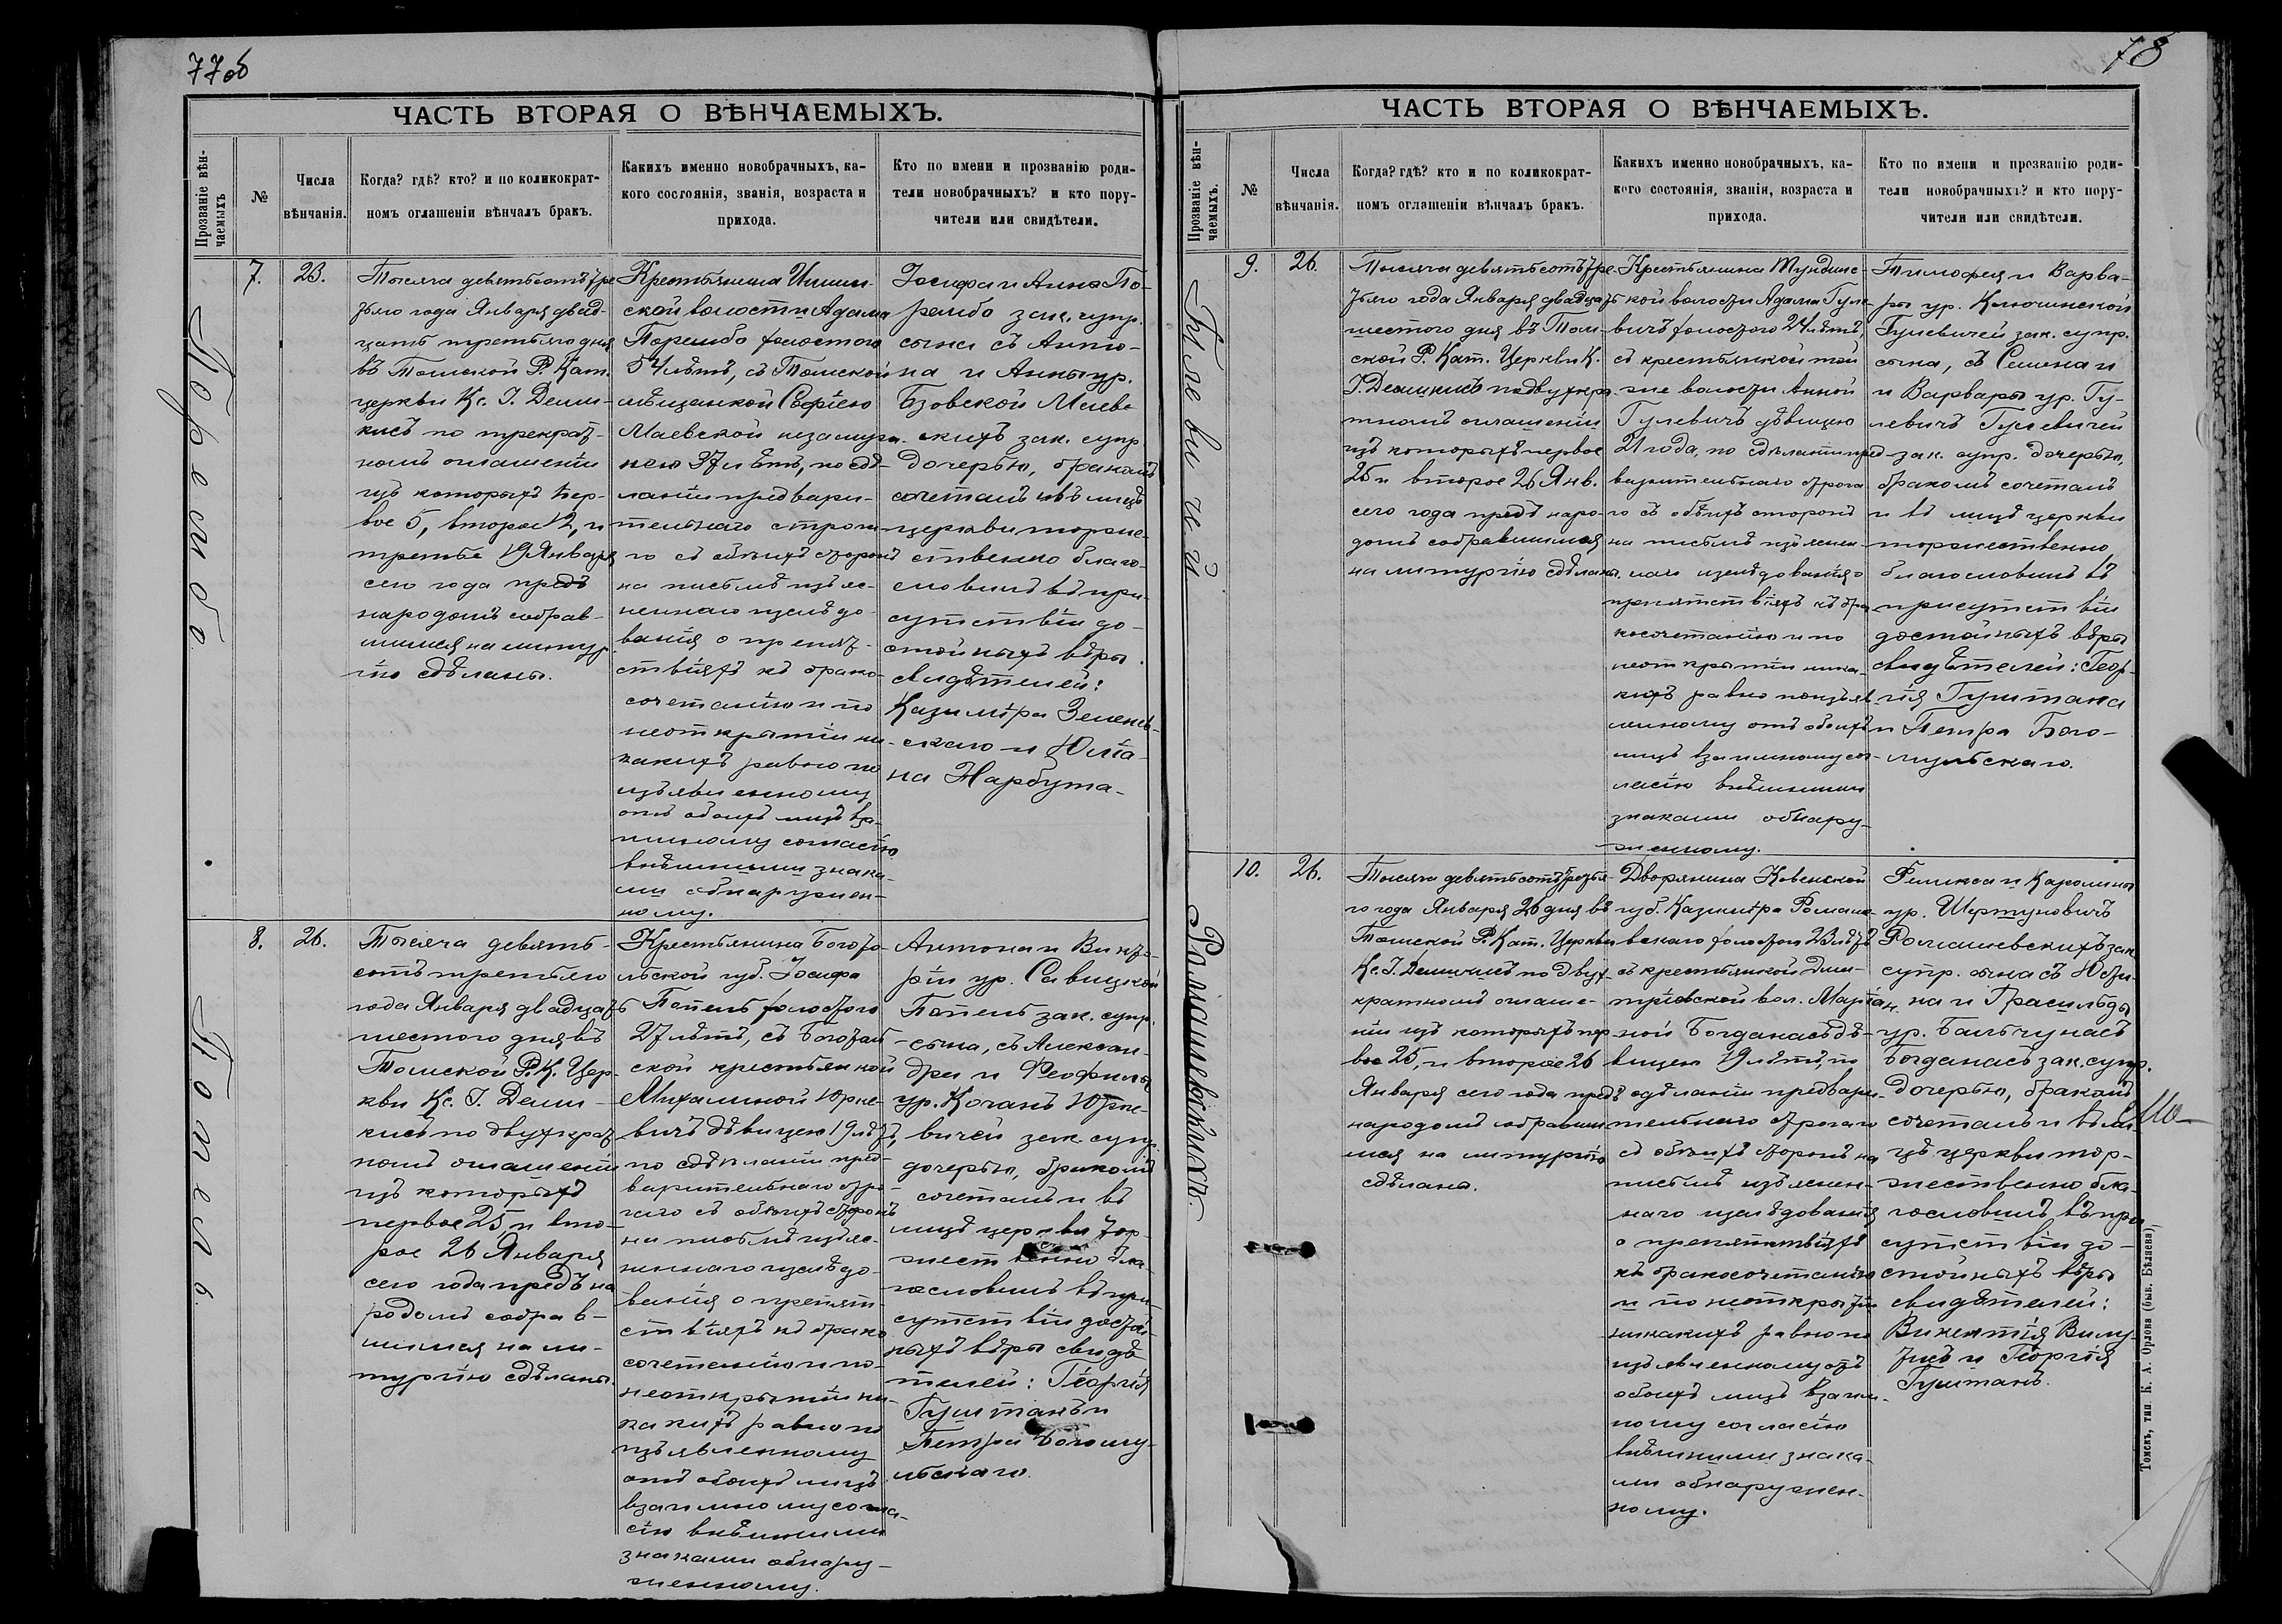 77об
ЧАСТЬ ВТОРАЯ О ВѢНЧАЕМЫХЪ.
Прозваніе вѣн-
чаемыхъ
№
Числа
вѣнчанія.
Когда? гдѣ? кто? и по коликократ-
номъ оглашеніи вѣнчалъ бракъ.
Какихъ именно новобрачныхъ, ка-
кого состоянія, званія, возраста и
прихода.
Кто по имени и прозванію роди-
тели новобрачныхъ? и кто пору-
чители или свидѣтели.
7.
23.
Тысяча девятьсотъ тре
тьяго года Января двад-
цать третьяго дня
въ Томской Р. Кат.
церкви Кс. І. Деми-
кисъ по трекрат-
номъ оглашеніи
изъ которыхъ пер-
вое 5, второе 12, и
третье 19 Января
сего года предъ
народомъ собрав-
шимся на литур
гію сдѣланы.
Крестьянина
ской волости Адама
холостого
лѣтъ, съ Томской
мѣщанкой Софіею
Маевской незамуж-
нею 37 лѣтъ, по сдѣ-
ланіи предвари-
тельнаго строга-
го съ обѣихъ сторонъ
на письмѣ изъяс-
неннаго изслѣдо-
ванія о препят-
ствіяхъ къ брако-
сочетанію и по
неоткрытіи ни-
какихъ равно по
изъявленному
отъ обоихъ лицъ вза-
имному согласію
внѣшними знака-
ми обнаружен-
ному.
Іосифа и Анны По-
рембо зак. супр.
сына съ Анто-
на и Анны ур.
Бзовской Маев-
скихъ зак. супр
дочерью, бракомъ
сочеталъ и въ лицѣ
церкви торже-
ственно благо-
словилъ въ при-
сутствіи до-
стойныхъ вѣры
свидѣтелей:
Казиміра Зелен-
скаго и Юліа-
на Нарбута.
8.
26.
Попель.
Тысяча девять-
сотъ третьяго
года Января двадцать
шестого дня въ
Томской Р. К. Цер-
кви Кс. І. Деми-
кисъ по двукрат
номъ оглашеніи
изъ которыхъ
первое 25 и вто-
рое 26 Января
сего года предъ на
родомъ собрав-
шимся на ли-
тургію сдѣланы.
Крестьянина
губ. Іосифа
Попель холостого
27 лѣтъ, съ
ской крестьянкой
Михалиной Юрке-
вичъ дѣвицею 19 лѣтъ,
по сдѣланіи пред-
варительнаго стро
гаго съ обѣихъ сторонъ
на письмѣ изъяс-
неннаго изслѣдо-
ванія о препят-
ствіяхъ къ брако
сочетанію и по-
неоткрытіи ни-
какихъ равно по
изъявленному
отъ обоихъ лицъ
взаимному согла-
сію внѣшними
знаками обнару-
женному.
Антона и Викто-
ріи ур. Савицкой
Попель зак. супр.
сына, съ Алексан-
дра и Феофилы
ур. Коганъ Юрке-
вичей зак. супр
дочерью, бракомъ
сочеталъ и въ
лицѣ церкви тор-
жественно бла-
гословилъ въ при-
сутствіи достой-
ныхъ вѣры свидѣ
телей: Георгія
Гуштанъ и
Петра Богому-
льскаго.
78
ЧАСТЬ ВТОРАЯ О ВѢНЧАЕМЫХЪ.
Прозваніе вѣн-
чаемыхъ.
№
Числа
вѣнчанія.
Когда? гдѣ? кто и по коликократ-
номъ оглашеніи вѣнчалъ бракъ.
Какихъ именно новобрачныхъ, ка-
кого состоянія, званія, возраста и
прихода.
Кто по имени и прозванію роди-
тели новобрачныхъ? и кто пору-
чители или свидѣтели.
9.
26.
Гулевичи
Тысяча девятьсотъ тре-
тьяго года Января двадцать
шестого дня въ Том-
ской Р. Кат. Церкви К.
І. Демикисъ по двукра-
тномъ оглашеніи
изъ которыхъ первое
25 и второе 26 Янв.
сего года предъ наро-
домъ собравшимся
на литургію сдѣланы.
Крестьянина
кой волости Адама Гуле-
вичъ холостого 24 лѣтъ,
съ крестьянкой той
же волости Анной
Гулевичъ дѣвицею
21 года, по сдѣланіи пред-
варительнаго строга-
го съ обѣихъ сторонъ
на письмѣ изъяснен-
наго изслѣдованія о
препятствіяхъ къ бра
косочетанію и по
неоткрытіи ника-
кихъ равно по изъяв
ленному отъ обоихъ
лицъ взаимному сог-
ласію внѣшними
знаками обнару-
женному.
Тимофея и Варва-
ры ур.
Гулевичей зак. супр.
сына, съ Семена и
и Варвары ур. Гу-
левичъ Гулевичей
зак. супр. дочерью,
бракомъ сочеталъ
и въ лицѣ церкви
торжественно
благословилъ въ
присутствіи
достойныхъ вѣры
свидѣтелей: Геор-
гія Гуштана
и Петра Бого-
мульскаго.
10.
26.
Ромашевскихъ.
Тысяча девятьсотъ третья-
го года Января 26 дня въ
Томской Р. Кат. Церкви
Кс. І. Демикисъ по двух-
кратномъ оглаше-
ніи изъ которыхъ пер
вое 25, и второе 26
Января сего года предъ
народомъ собравши
мся на литургію
сдѣланы.
Дворянина Ковенской
губ. Казиміра Ромаше-
вскаго холостого 23 лѣтъ
съ крестьянкой Дми-
тріевской вол. Маріан-
ной Богданасъ дѣ-
вицею 19 лѣтъ, по
сдѣланіи предвари-
тельнаго строгаго
съ обѣихъ сторонъ на
письмѣ изъяснен-
наго изслѣдованія
о препятствіяхъ
къ бракосочетанію
и по неоткрытіи
никакихъ равно по
изъявленному отъ
обоихъ лицъ взаим-
ному согласію
внѣшними знака-
ми обнаружен-
ному.
Феликса и Каролины
ур.
Ромашевскихъ зак
супр. сына съ Юсти-
на и Грасильды
ур. Бальчунасъ
Богданасъ зак. супр.
дочерью, бракомъ
сочеталъ и въ ли-
цѣ церкви тор-
жественно бла-
гословилъ въ при
сутствіи до-
стойныхъ вѣры
свидѣтелей:
Викентія
и Георгія
Гуштанъ.
Томскъ, тип. К. А. Орлова (быв. Бѣляева)